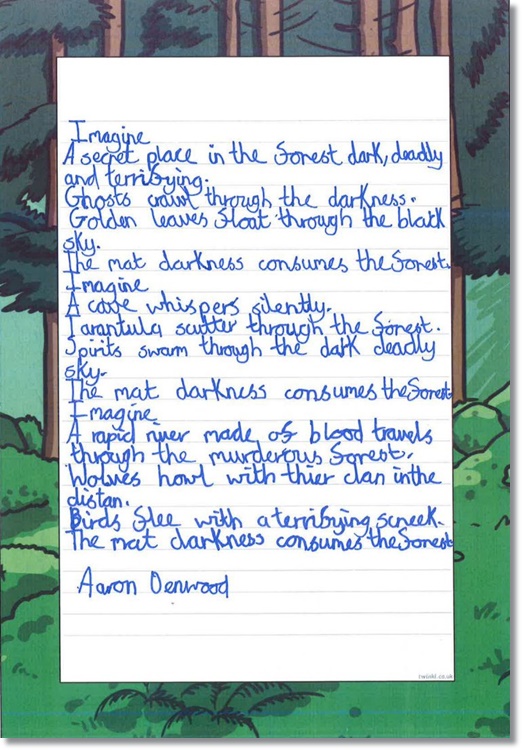 Imagine
A secret place in the forest dark, deadly
and terrifying.
Ghosts crawl through the darkness.
Golden leaves float through the black
sky.
The mat darkness consumes the forest.
Imagine
A cave whispers silently.
Tarantula scutter through the forest.
Spirits swarm through the dark deadly
sky.
The mat darkness consumes the forest
Imagine
A rapid river made of blood travels
through the murderous forest.
Wolves howl with thier clan in the
distan.
Birds flee with a terrifying screek.
The mat darkness consumes the forest
Aaron Denwood
twinkl.co.uk